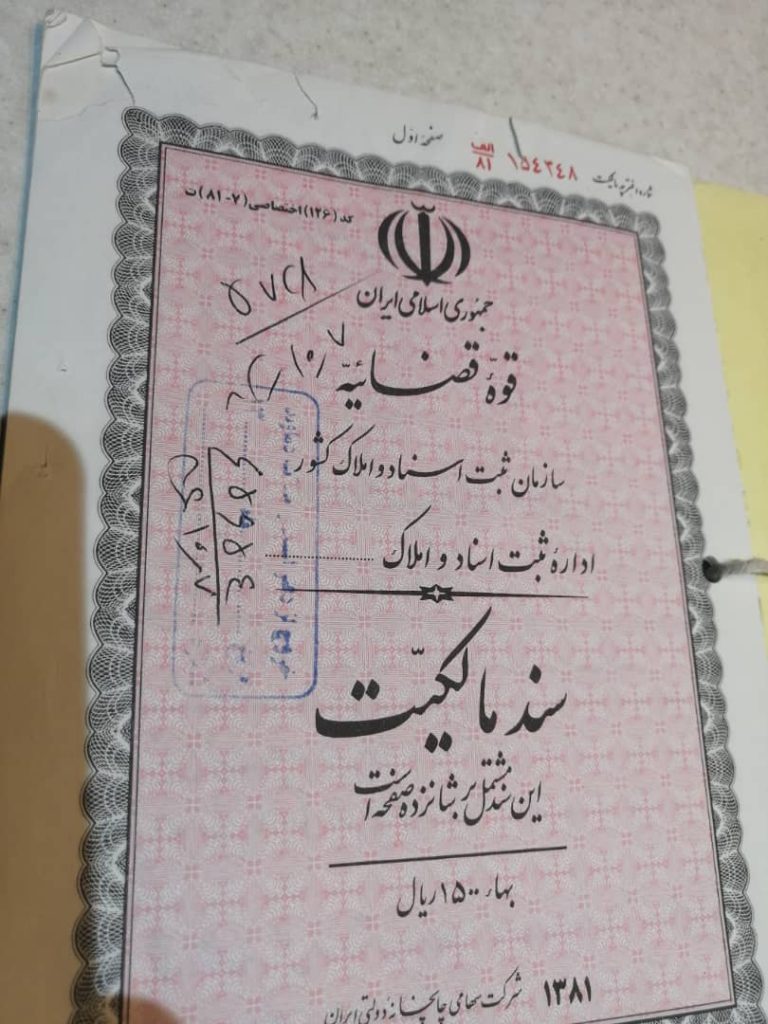 صفحهٔ اوّل
شماره دفترچه مالکیت ۱۵۴۳۴۸ الف/۸۱
کد (۱۲۶) اختصاصی (۷-۸۱) ت
جمهوری اسلامی ایران
قوهٔ قضائیه
سازمان ثبت اسناد و املاک کشور
ادارهٔ ثبت اسناد و املاک ........................
سند مالکیّت
این سند مشتمل بر شانزده صفحه است
بهاء ۱۵۰۰ ریال
۱۳۸۱ شرکت سهامی چاپخانهٔ دولتی ایران